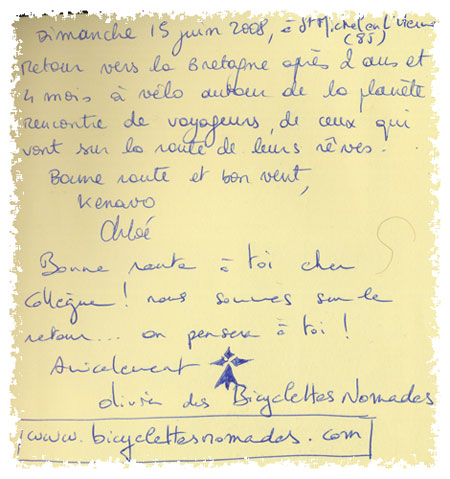 Dimanche 15 juin 2008, à St Michel en l'
(85)
Retour vers la Bretagne après 2 ans et
4 mois à vélo autour de la planète
Rencontre de voyageurs, de ceux qui
vont sur la route de leurs rêves.
Bonne route et bon vent,
Kenavo
Chloé
Bonne route à toi cher
collègue! nous sommes sur le
retour... on pensera à toi!
Amicalement
Olivier des Bicyclettes Nomades
www.bicyclettesnomades.com